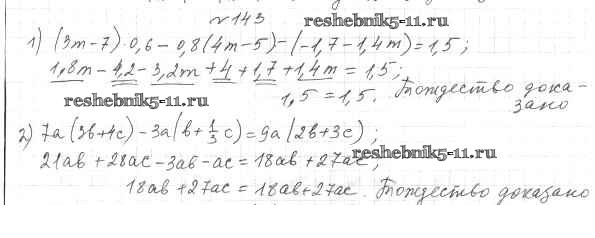 № 143
reshebnik5-11.ru
1) (3m-7)·0,6-0,8(4m-5)-(-1,7-1,4m)=1,5;
1,8m-4,2-3,2m+4+1,7+1,4m=1,5;
reshebnik5-11.ru
1,5=1,5. Тождество дока-
зано
2) 7a(3b+4c)-3a(b+1/3c)=9a(2b+3c);
21ab+28ac-3ab-ac=18ab+27ac;
reshebnik5-11.ru
18ab+27ac=18ab+27ac. Тождество доказано